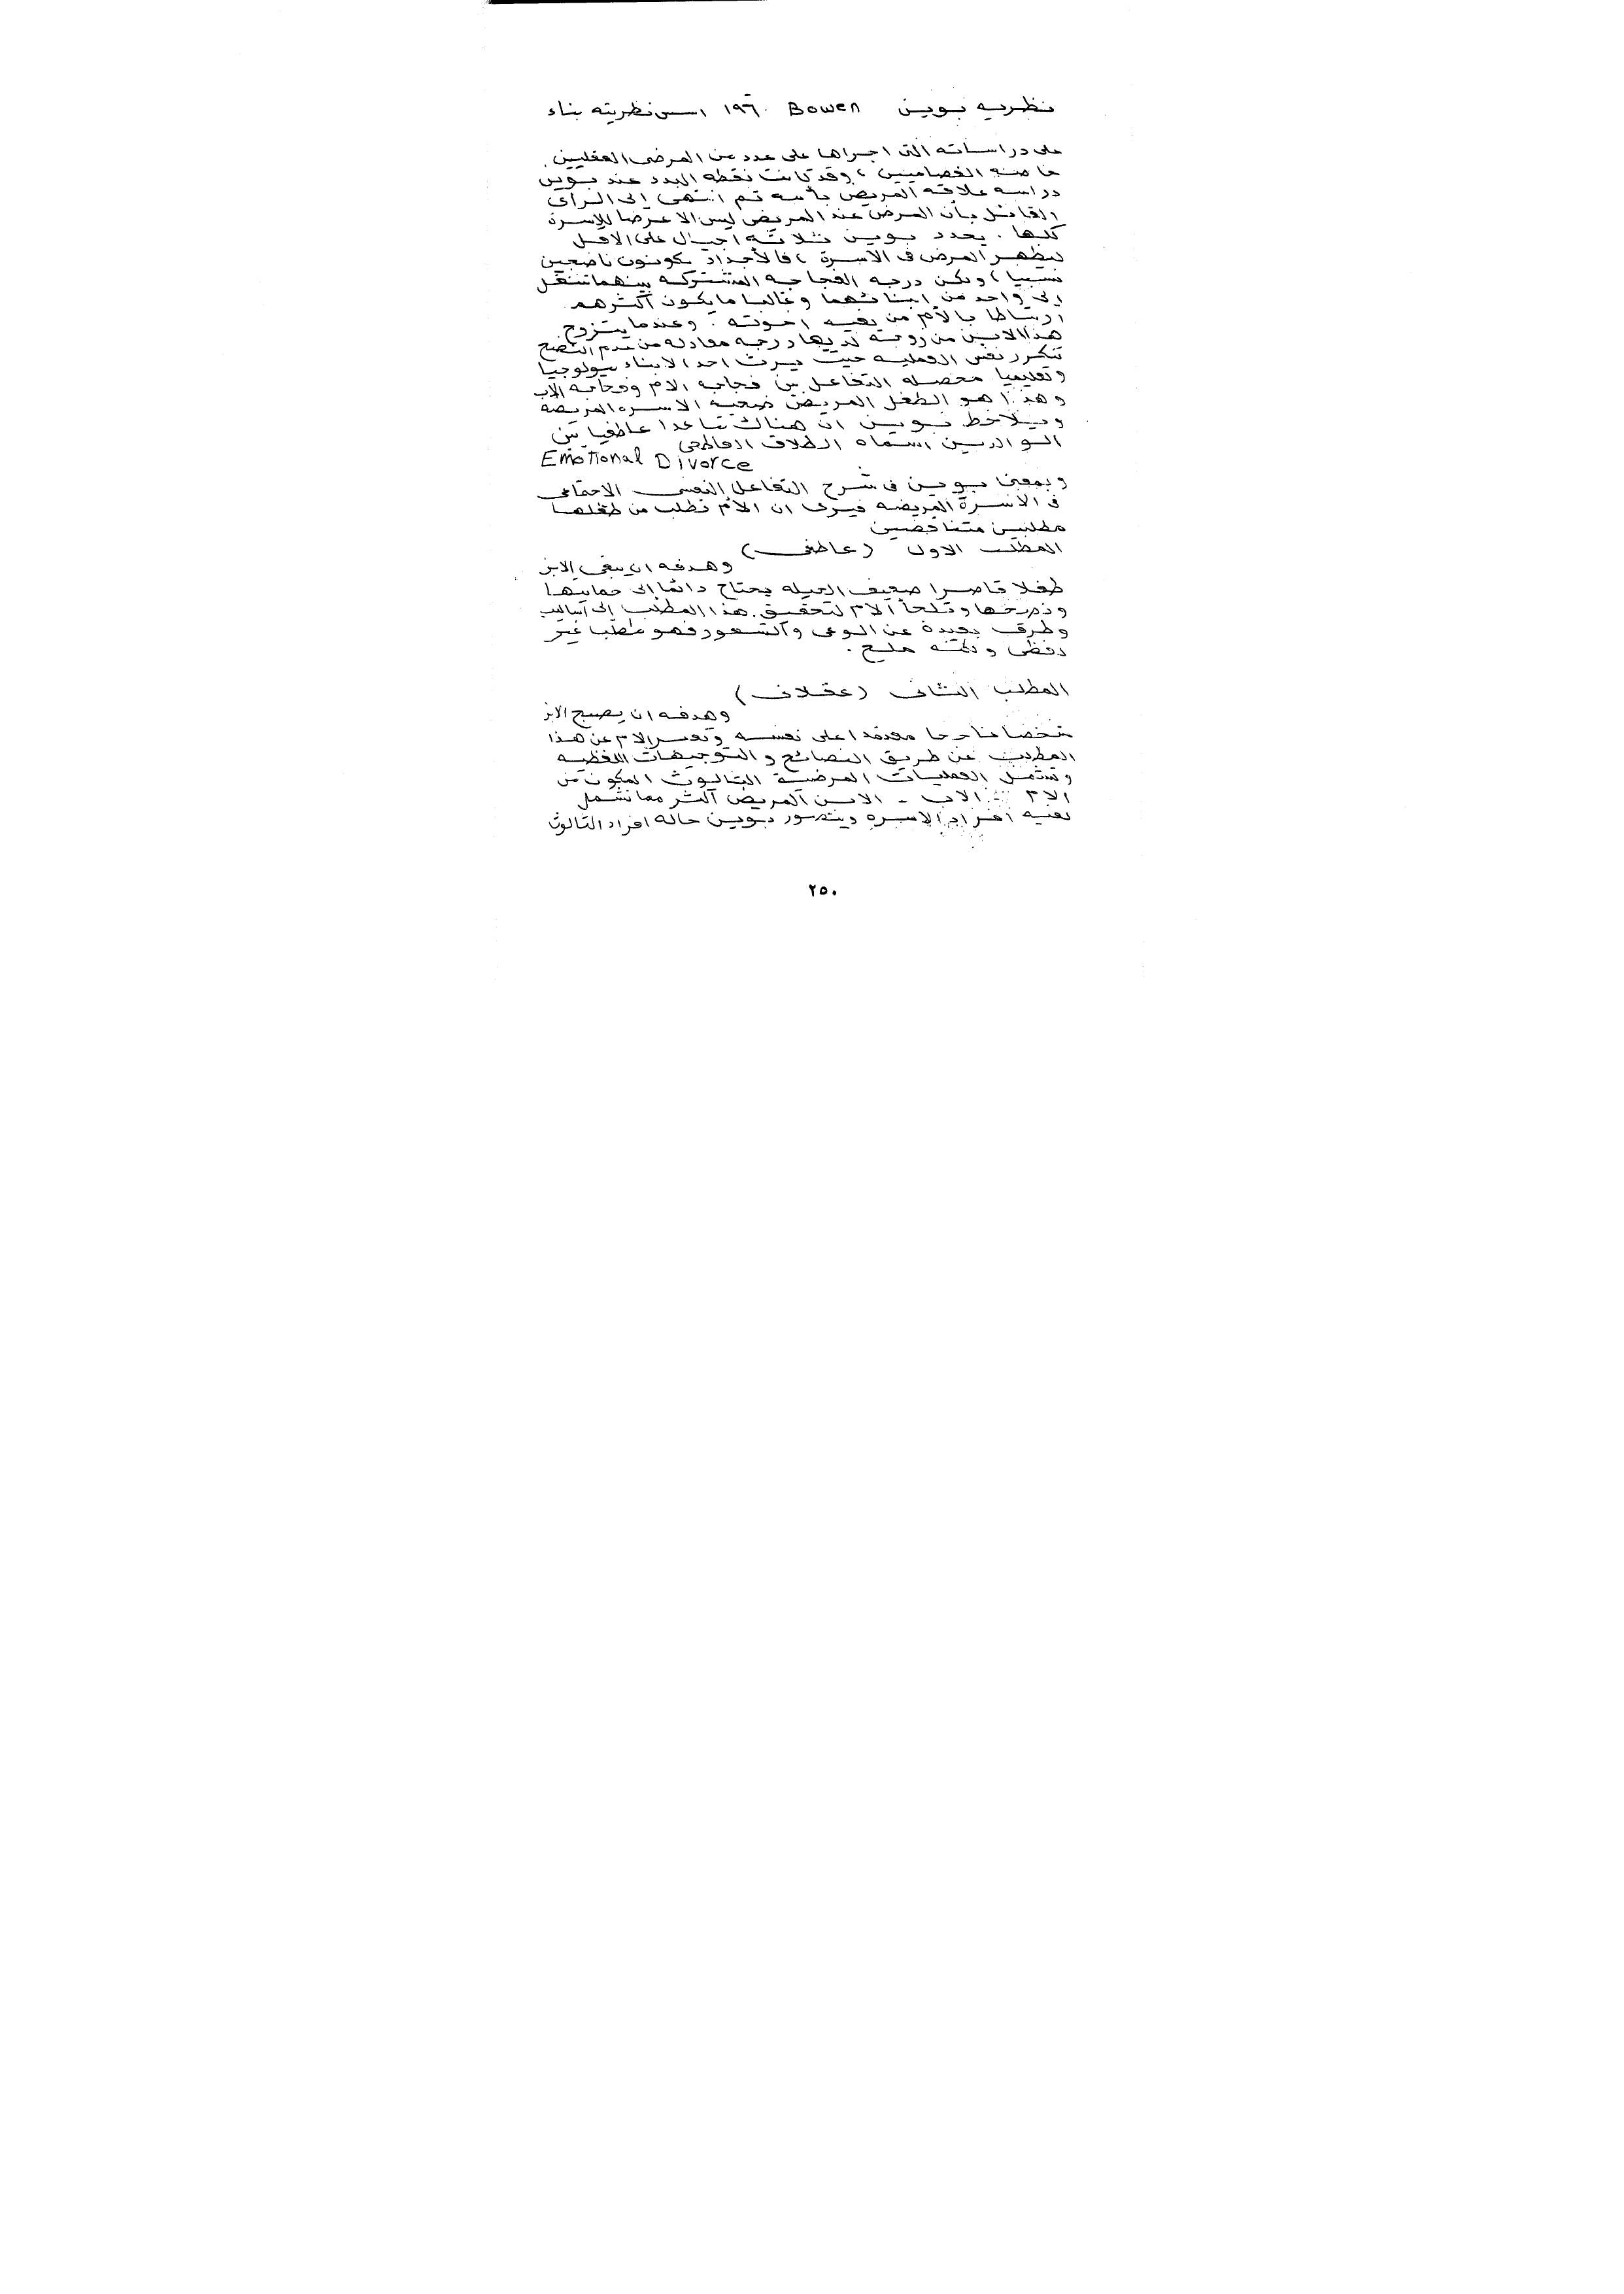 نظريه بوين Bowen ١٩٦٠ اسس نظريته بناء
على دراساته التى اجراها على عدد من المرضى العقليين
خاصة الفصاميين ، وقد كانت نقطه البدء عند بوين
دراسه علاقه المريض بأمه ثم انتهى إلى الرأى
القائل بأن المرض عند المريض ليس الا عرضا للإسرة
كلها . يحدد بوين ثلاثه اجيال على الاقل
ليظهر المرض فى الآسرة ، فالأجداد يكونون ناضجين
نسبيا ، ولكن درجه الفجاجه المشتركه بينهما تنتقل
إلى واحد من ابنائهما وغالبا ما يكون أكثرهم
ارتباطا بالأم من بقيه اخوته . وعندما يتزوج
هذا الابن من زوجة لديها درجه معادله من عدم النضج
تتكرر نفس العمليه حيث يرث احد الابناء بيولوجيا
وتعليميا محصله التفاعل بين فجاجه الام وفجاجه الاب
وهذا هو الطفل المريض ضحيه الاسره المريضة
ويلاحظ بوين ان هناك تباعدا عاطفيا بين
الوالدين اسماه الطلاق العاطفى
Emotional Divorce
ويمعن بوين فى شرح التفاعل النفسى الاجتماعى
فى الاسرة المريضه فيرى ان الأم تطلب من طفلها
مطلبين متناقضين
المطلب الاول (عاطفى)
وهدفه ان يبقى الابن
طفلا قاصرا ضعيف الحيله يحتاج دائما إلى حمايتها
وتلجأ الأم لتحقيق هذا المطلب إلى أساليب
وطرق بعيدة عن الوعى والشعور فهو مطلب غير
لفظى ولكنه ملح .
المطلب الثانى (عقلانى)
وهدفه ان يصبح الابن
شخصا ناجحا معتمدا على نفسه وتعبر الام عن هذا
المطلب عن طريق النصائح والتوجيهات اللفظيه
وتشمل العمليات المرضية الثالوث المكون من
الام - الاب - الابن المريض أكثر مما تشمل
بقيه افراد الاسره ويتصور بوين حاله افراد الثالوث
٢٥٠